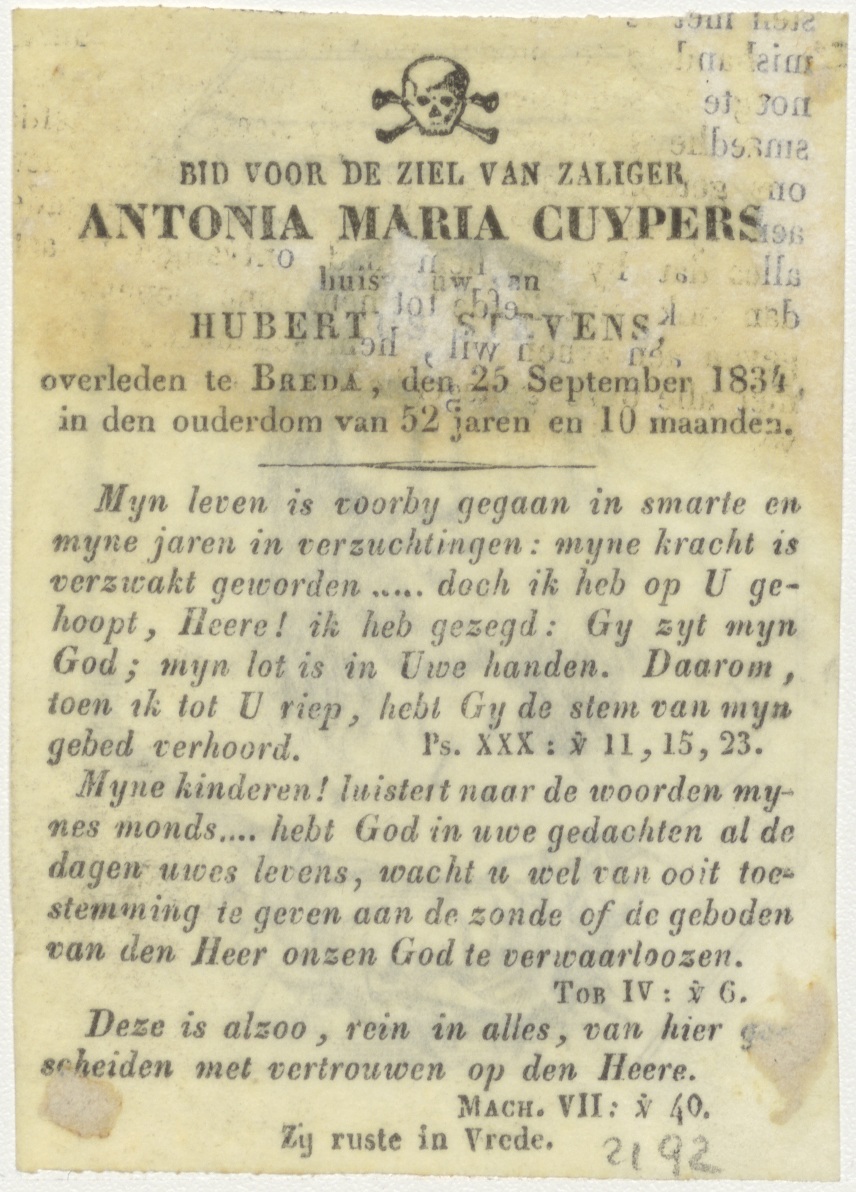 BID VOOR DE ZIEL VAN ZALIGER
ANTONIA MARIA CUYPERS
HUBERTUS STEVENS,
overleden te BREDA, den 25 September 1834,
in den ouderdom van 52 jaren en 10 maanden.
Myn leven is voorby gegaan in smarte en
myne jaren in verzuchtingen: myne kracht is
verzwakt geworden ..... doch ik heb op U ge-
hoopt, Heere! ik heb gezegd: Gy zyt myn
God; myn lot is in Uwe handen. Daarom,
toen ik tot U riep, hebt Gy de stem van myn
gebed verhoord. Ps. XXX: ℣ 11, 15, 23.
Myne kinderen! luistert naar de woorden my-
nes monds.... hebt God in uwe gedachten al de
dagen uwes levens, wacht u wel van ooit toe-
stemming te geven aan de zonde of de geboden
van den Heer onzen God te verwaarloozen.
TOB IV: ℣ 6.
Deze is alzoo, rein in alles, van hier
scheiden met vertrouwen op den Heere.
MACH. VII: ℣ 40.
Zij ruste in Vrede.
2192